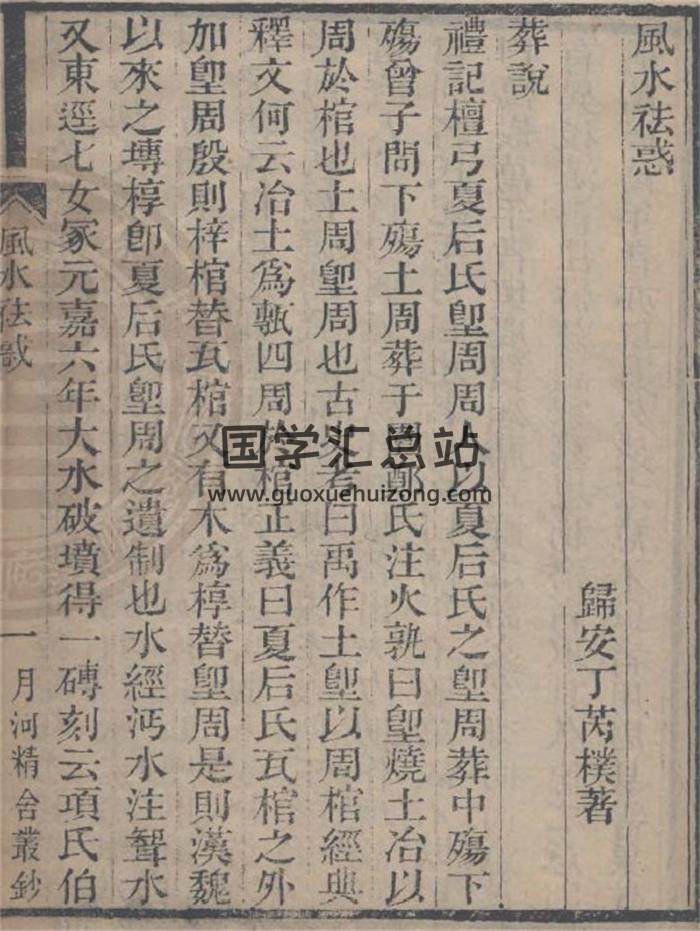 風水祛惑
歸安丁芮樸著
葬說
禮記檀弓夏后氏堲周周人以夏后氏之堲周葬中殤下
殤曾子問下殤土周葬于園鄭氏注火孰曰堲燒土冶以
周於棺也土周堲周也古史考曰禹作土堲以周棺經典
釋文何云冶土為甎四周於棺正義曰夏后氏瓦棺之外
加堲周殷則梓棺替瓦棺又有木為椁替堲周是則漢魏
以來之塼椁卽夏后氏堲周之遺制也水經沔水注聱水
又東逕七女冢元嘉六年大水破墳得一磚刻云項氏伯
風水祛惑
一
月河精舍叢鈔
国学汇总站
www.guoxuehuizong.com